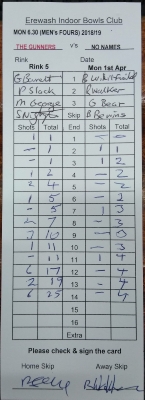 Erewash Indoor Bowls Club
MON 6.30 (MEN's FOURS) 2018/19
THE GUNNERS v's NO NAMES
Rink Date
Rink 5 Mon 1st Apr
G Barrett 1
P Slack 2 P Walker
M George 3 G Bear
Skip B Bevins
Shots Total End Shots Total
1 1 1 - -
- 1 2 1 1
- 1 3 1 2
1 2 4 - 2
2 4 5 - 2
1 5 6 - 2
- 5 7 1 3
2 7 8 - 3
3 10 9 - 3
1 11 10 - 3
- 11 11 1 4
6 17 12 - 4
2 19 13 - 4
6 25 14 - 4
15
16
Extra
Please check & sign the card
Home Skip Away Skip